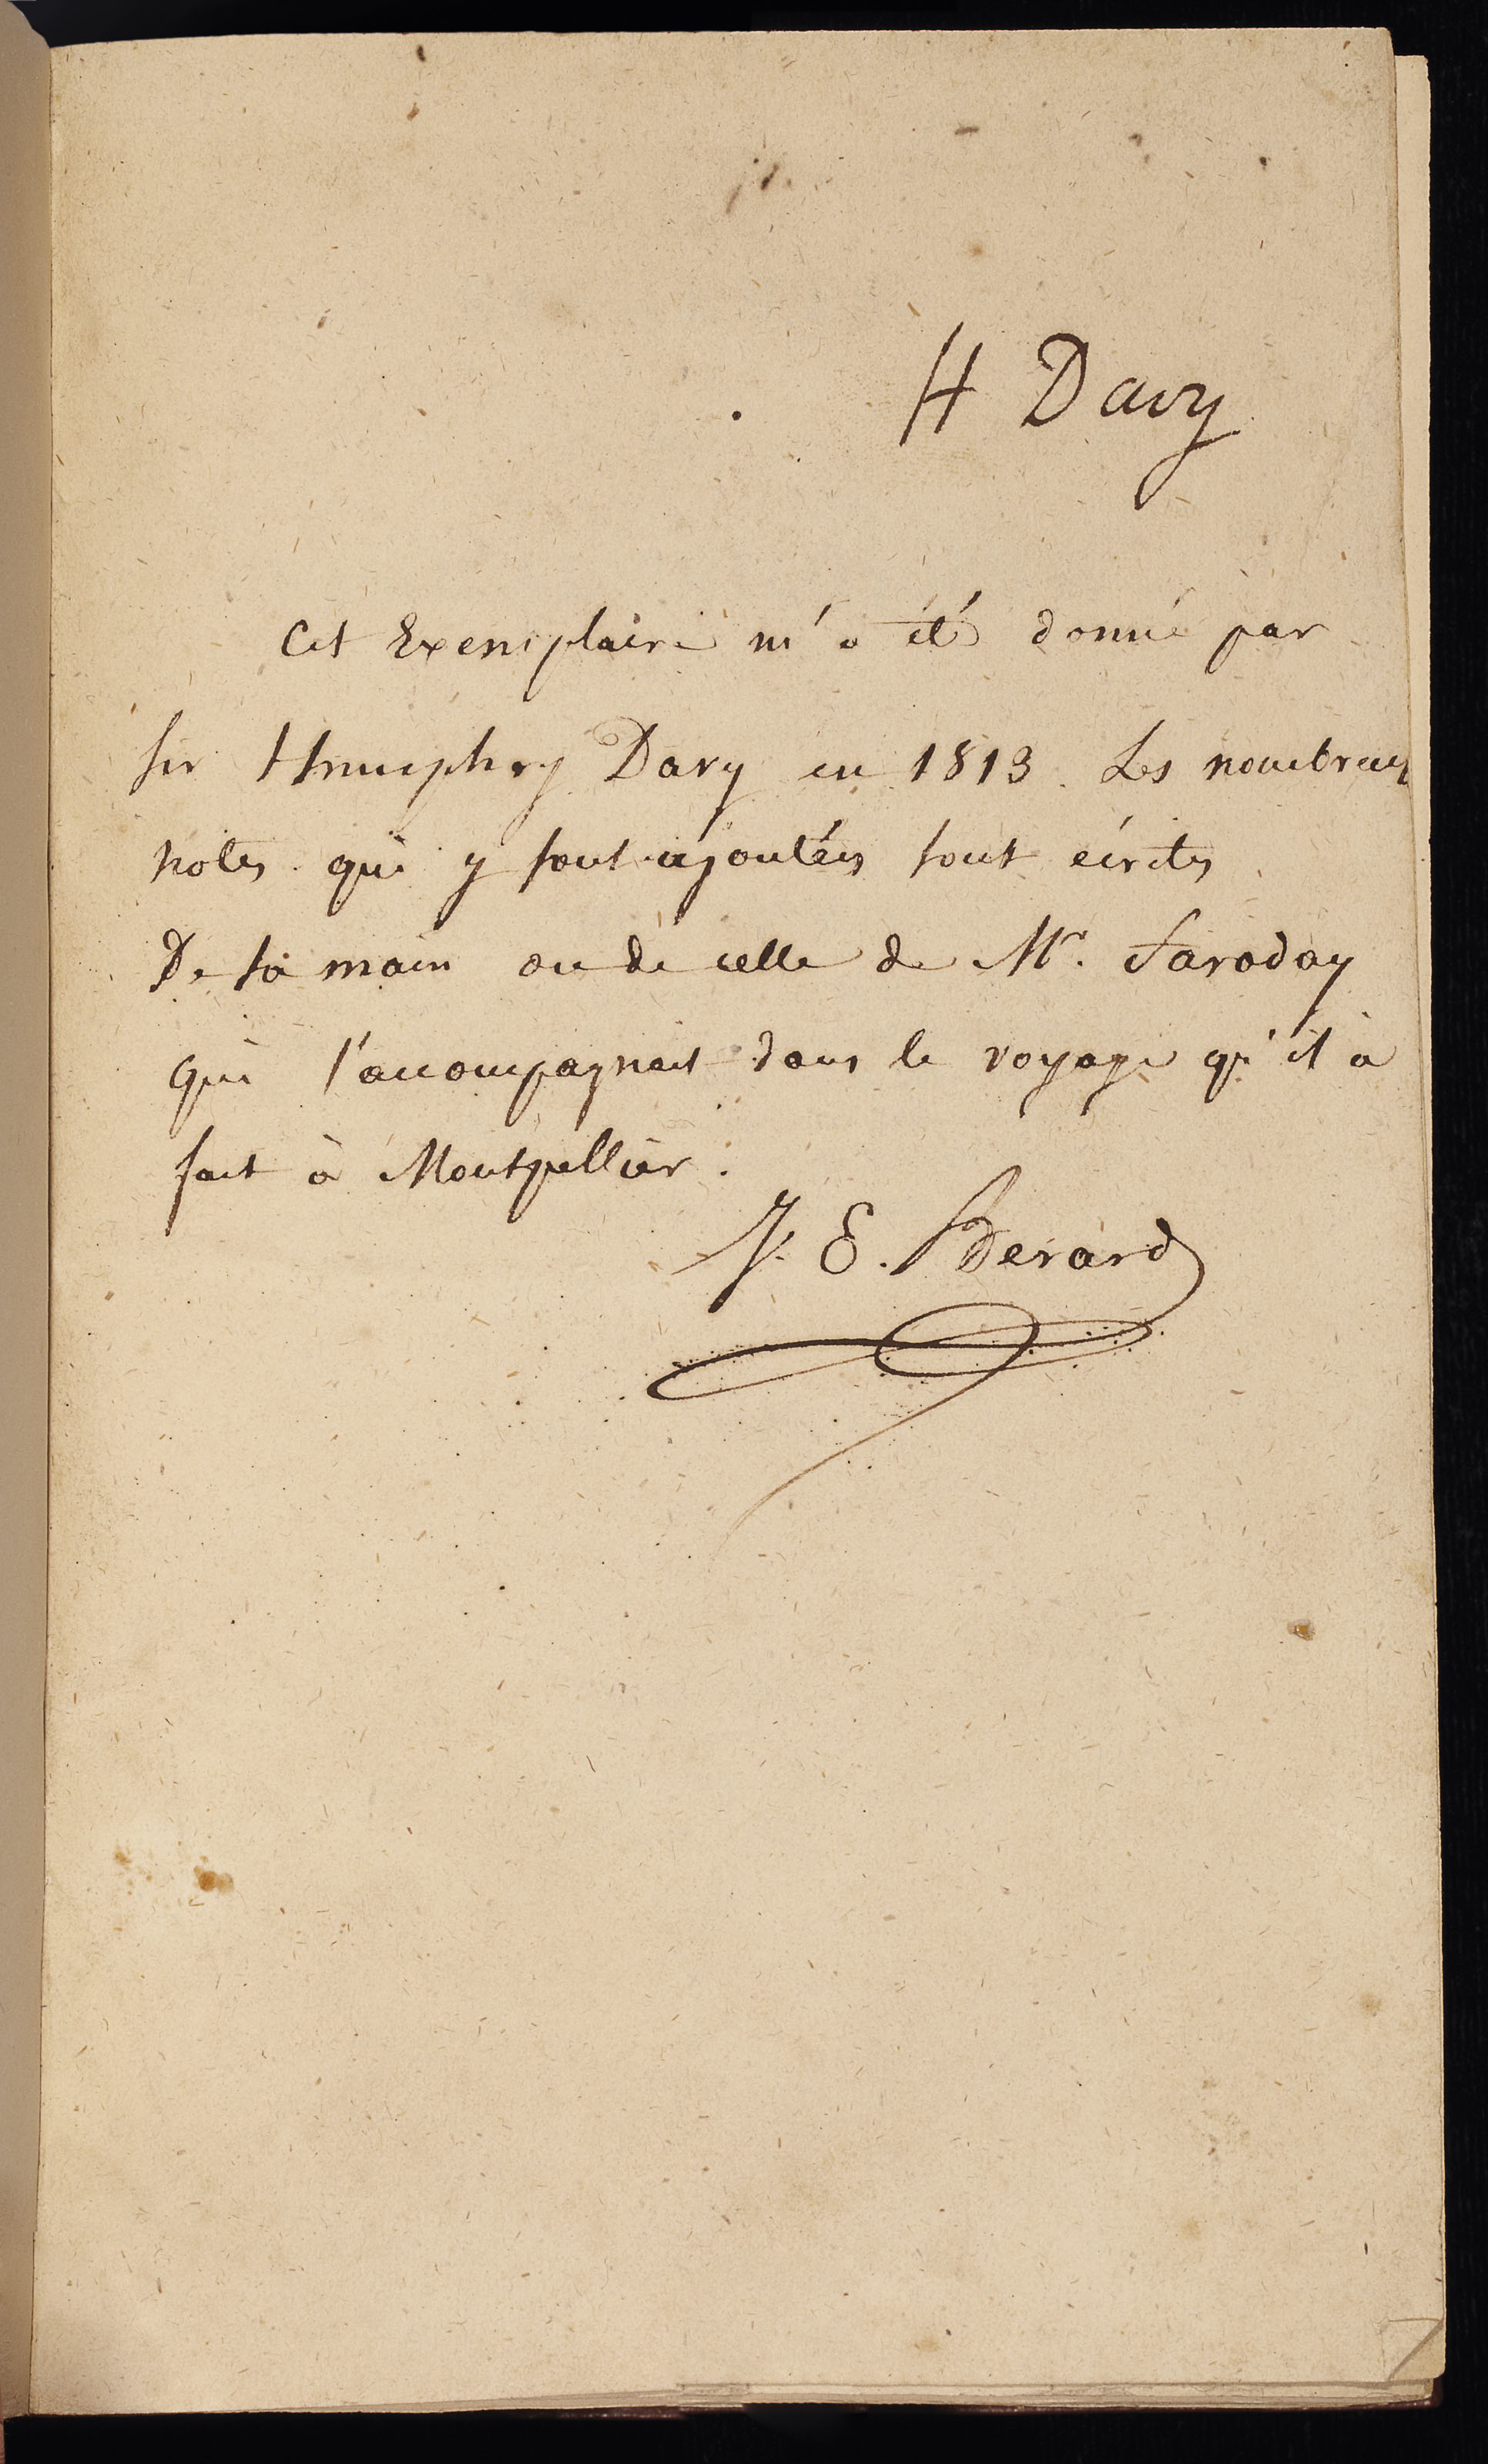 H Davy
Cet Exemplaire m'a été donné par
Sir Humphry Davy en 1813. Les nombreuses
notes qui y sont ajoutées sont écrites
De sa main ou de celle de Mr. Faraday
qui l'accompagnait dans le voyage qu'il à
fait à Montpellier.
J. E. Berard